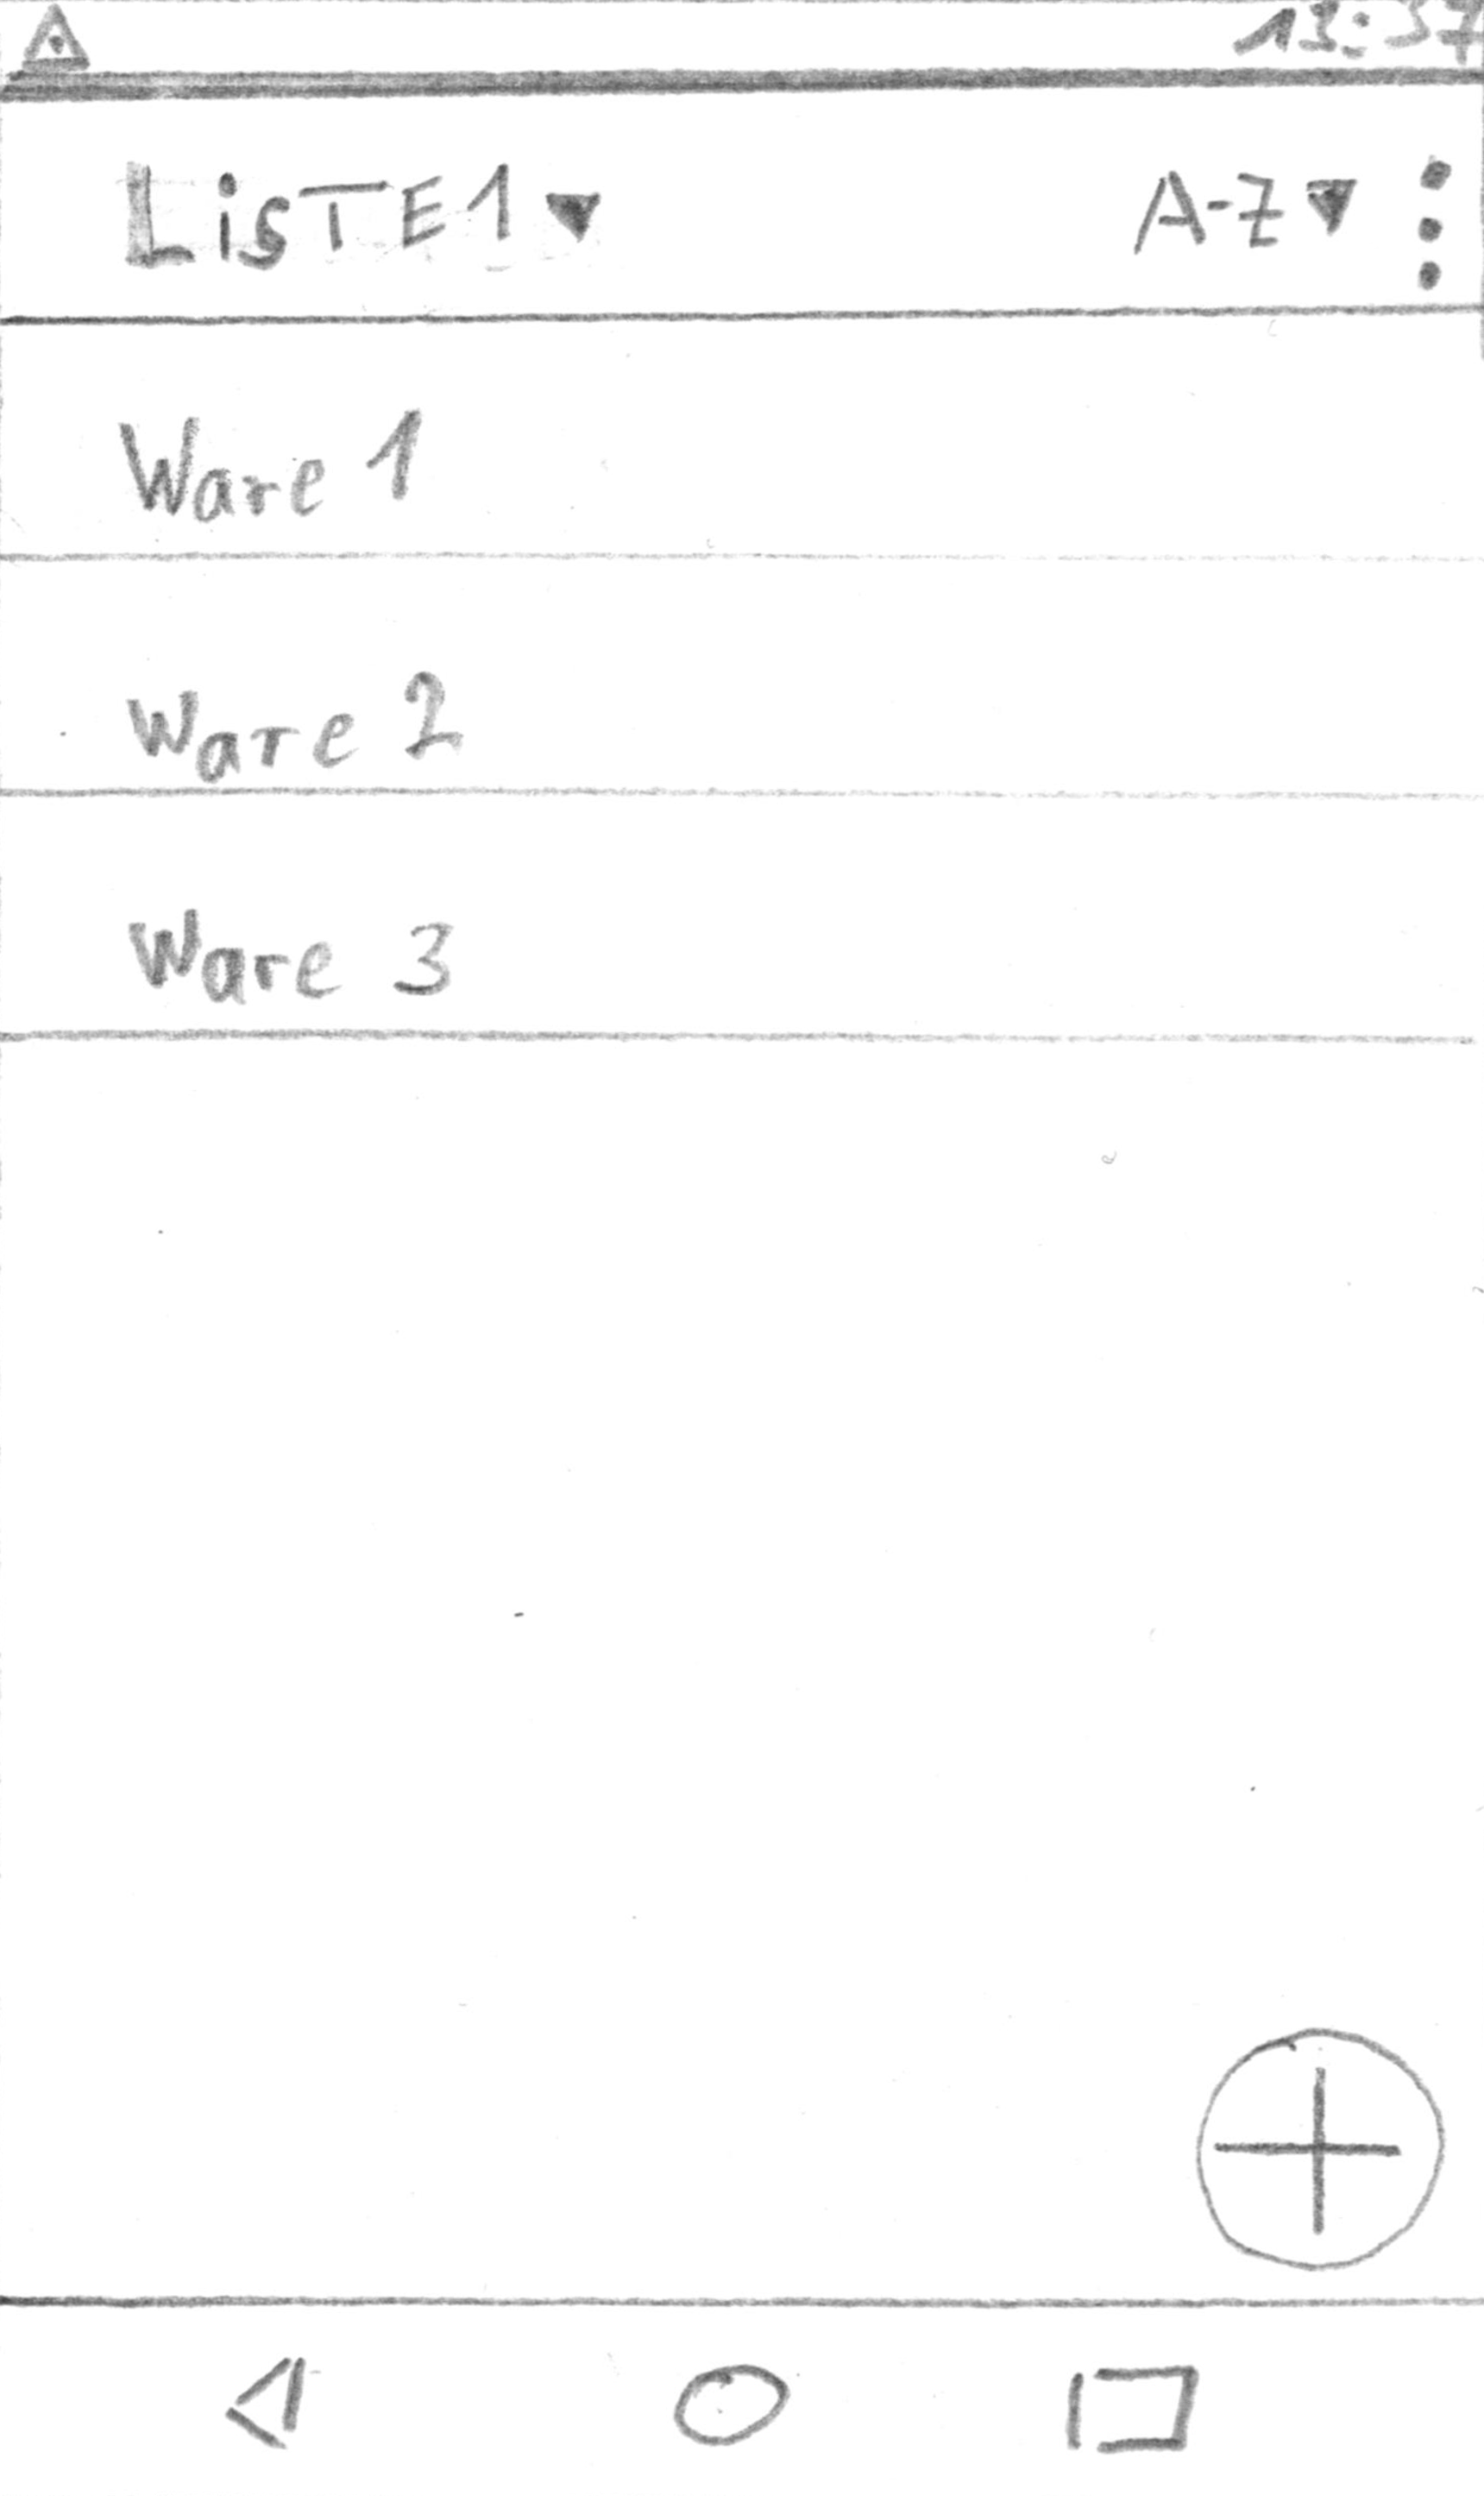 13:37
LiSTE1 A-Z
Ware 1
Ware 2
Ware 3